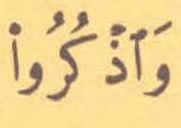 وَٱذۡكُرُواْ